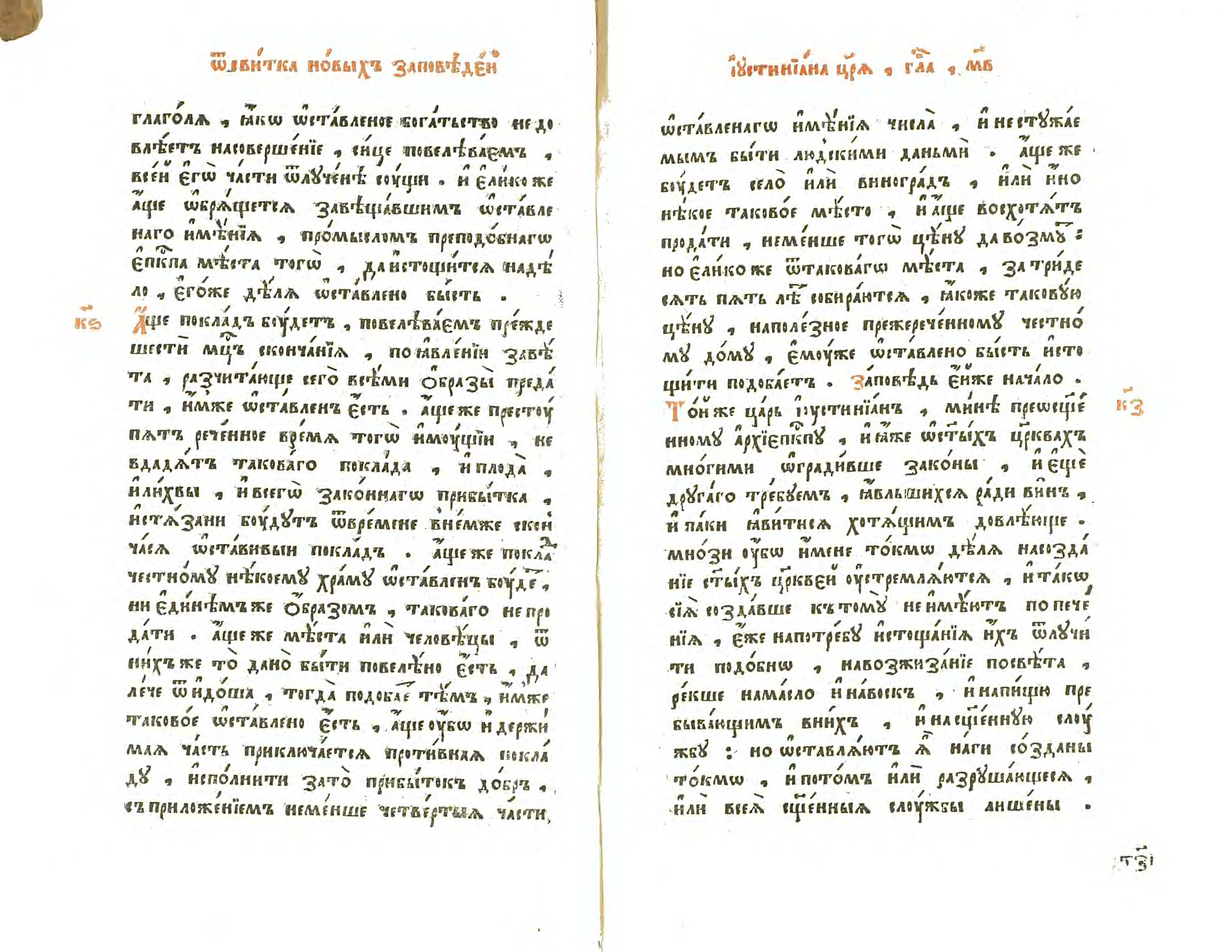 ѿсви́тка но́выхъ За́повѣде́й
глаго́лѧ , ꙗ҆́кѡ ѡ҆ста́вленое бога́тьство не до
влѣ́етъ насоверше́нїе , си́це повелѣва́емъ ,
все́й є҆гѡ̀ ча́сти ѿлꙋче́нѣ соу́щи . и҆ є҆ли́ко же
а҆́ще ѡ҆брѧ́щетсѧ завѣща́вшимъ ѡ҆ста́вле
наго и҆мѣ́нїѧ , про́мысломъ преподо́бнагѡ
є҆пⷭ҇кпа мѣ́ста тогѡ̀ , да и҆стощи́тсѧ на дѣ́
ло , є҆го́же дѣ́лѧ ѡ҆ста́влено бы́сть .
к҃ѕ
А҆́ще покла́дъ боу́детъ , повелѣва́емъ пре́жде
шестѝ мц҃ъ сконча́нїѧ , по ꙗ҆вле́нїи завѣ́
та , разчита́юще сего̀ всѣ́ми ѻ҆́бразы̀ преда́
ти , и҆́мже ѡ҆ста́вленъ є҆́сть . а҆́ще же престоу́
пѧтъ рече́нное вре́мѧ тогѡ̀ и҆моу́щїи , не
вдадѧ́тъ таково́го покла́да , и҆ плода̀ ,
и҆ ли́хвы , и҆ всегѡ̀ зако́ннагѡ прибы́тка ,
и҆стѧ́зани боу́дꙋтъ ѿвре́мене вне́мже скон
ча́сѧ ѡ҆ста́вивыи покла́дъ . а҆́ще же поклаⷣ
честно́мꙋ нѣ́коемꙋ хра́мꙋ ѡ҆ста́вленъ боу́деⷮ ,
ни є҆ди́нѣмъ же ѻ҆́бразомъ , такова́го не про
да́ти . а҆́ще же мѣ́ста и҆лѝ человѣ́цы , ѿ
ни́хъ же то̀ дано̀ бы́ти повелѣ́но є҆́сть , да
ле́че ѿидо́ша , тогда̀ подоба́еⷮ тѣ́мъ , и҆́мже
таково́е ѡ҆ста́влено є҆́сть , а҆́ще оу҆́бѡ и҆ держи́
маѧ ча́сть приключа́етсѧ проти́внаѧ покла́
дꙋ , и҆спо́лнити зато̀ прибы́токъ до́бръ ,
съ приложе́нїемъ неме́нше четве́ртыѧ ча́сти,
І҆ꙋстинїа́на цр҃ѧ , глаⷡ҇ , м҃в
ѡ҆ста́вленагѡ и҆мѣ́нїѧ числа̀ , и҆ не стꙋжа́е
мымъ бы́ти людски́ми да́ньми . а҆́ще же
боу́детъ село̀ и҆лѝ виногра́дъ , и҆лѝ и҆́но
нѣ́кое таково́е мѣ́сто , и҆ а҆́ще восхотѧ́тъ
прода́ти , неме́нше тогѡ̀ цѣ́нꙋ да во́змꙋⷮ :
но є҆ли́ко же ѿтакова́гѡ мѣ́ста , за три́де
сѧть пѧть лѣⷮ собира́ютсѧ , ꙗ҆́коже такову́ю
цѣ́нꙋ , наполе́зное прежерече́нномꙋ честно́
мꙋ до́мꙋ , є҆мꙋ́же ѡ҆ста́влено бы́сть и҆сто
щи́ти подоба́етъ . За́повѣдь є҆йже нача́ло .
к҃з
То́й же ца́рь і҆ꙋстинїа́нъ , ми́нѣ преѡсщ҃е́
нномꙋ а҆рхїепⷭ҇кпꙋ , и҆ ꙗ҆́же ѡ҆ ст҃ы́хъ цр҃квахъ
мно́гими ѡ҆гради́вше зако́ны , и҆ є҆щѐ
дрꙋга́го тре́бꙋемъ , ꙗ҆́влышихсѧ ра́ди ви́нъ ,
и҆ паки ꙗ҆ви́тисѧ хотѧ́щимъ довлѣ́юще .
мно́зи оу҆́бѡ и҆́мене то́кмѡ дѣ́лѧ насозда́
нїе ст҃ы́хъ цр҃кве́й оу҆стремлѧ́ютсѧ , и҆ та́кѡ
сїѧ̀ созда́вше къ томꙋ̀ не и҆мѣ́ютъ попече́
нїѧ , є҆́же напотре́бꙋ и҆стоща́нїѧ и҆́хъ ѿлꙋчи́
ти подо́бнѡ , навозжиза́нїе посвѣ́та ,
ре́кше нама́сло и҆ нава́скъ , и҆ напи́щю пре
быва́ющимъ вни́хъ , и҆ на сщ҃е́ннꙋю слоу́
жбꙋ : но ѡ҆ставлѧ́ютъ ѧ҆̀ на́ги со́зданы
то́кмѡ , и҆ пото́мъ и҆лѝ разрꙋша́ющесѧ ,
и҆лѝ всеѧ̀ сщ҃е́нныѧ слоу́жбы лише́ны .
т҃з